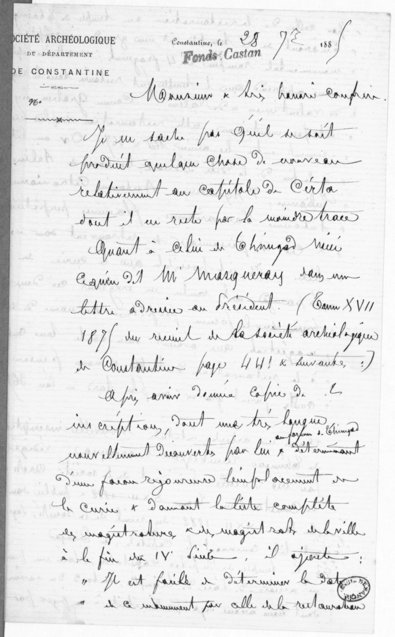 SOCIÉTÉ ARCHÉOLOGIQUE
DU DÉPARTEMENT
DE CONSTANTINE
No
Constantine, le 28 7bre 1885
Fonds Castan
Monsieur & très honoré confrère
Je ne sache pas qu'il se soit
produit quelque chose de nouveau
relativement au capitole de Cirta
dont il ne reste pas la moindre trace
Quant à celui de Thimgad voici
ce qu'en dit Mr Masqueray dans une
lettre adressée au Président (Tome XVII
1875 du recueil de la société archéologique
de Constantine page 441 & suivantes :)
Après avoir donné copie de 2
inscriptions, dont une très longue
nouvellement découverts par lui au forum de Thimgad & déterminant
d'une façon rigoureuse l'emplacement de
la curie & donnant la liste complète
des magistratures & des magistrats de la ville
à la fin du IVe siècle, il ajoute :
" Il est facile de déterminer la date
" de ce monument par celle de la restauration